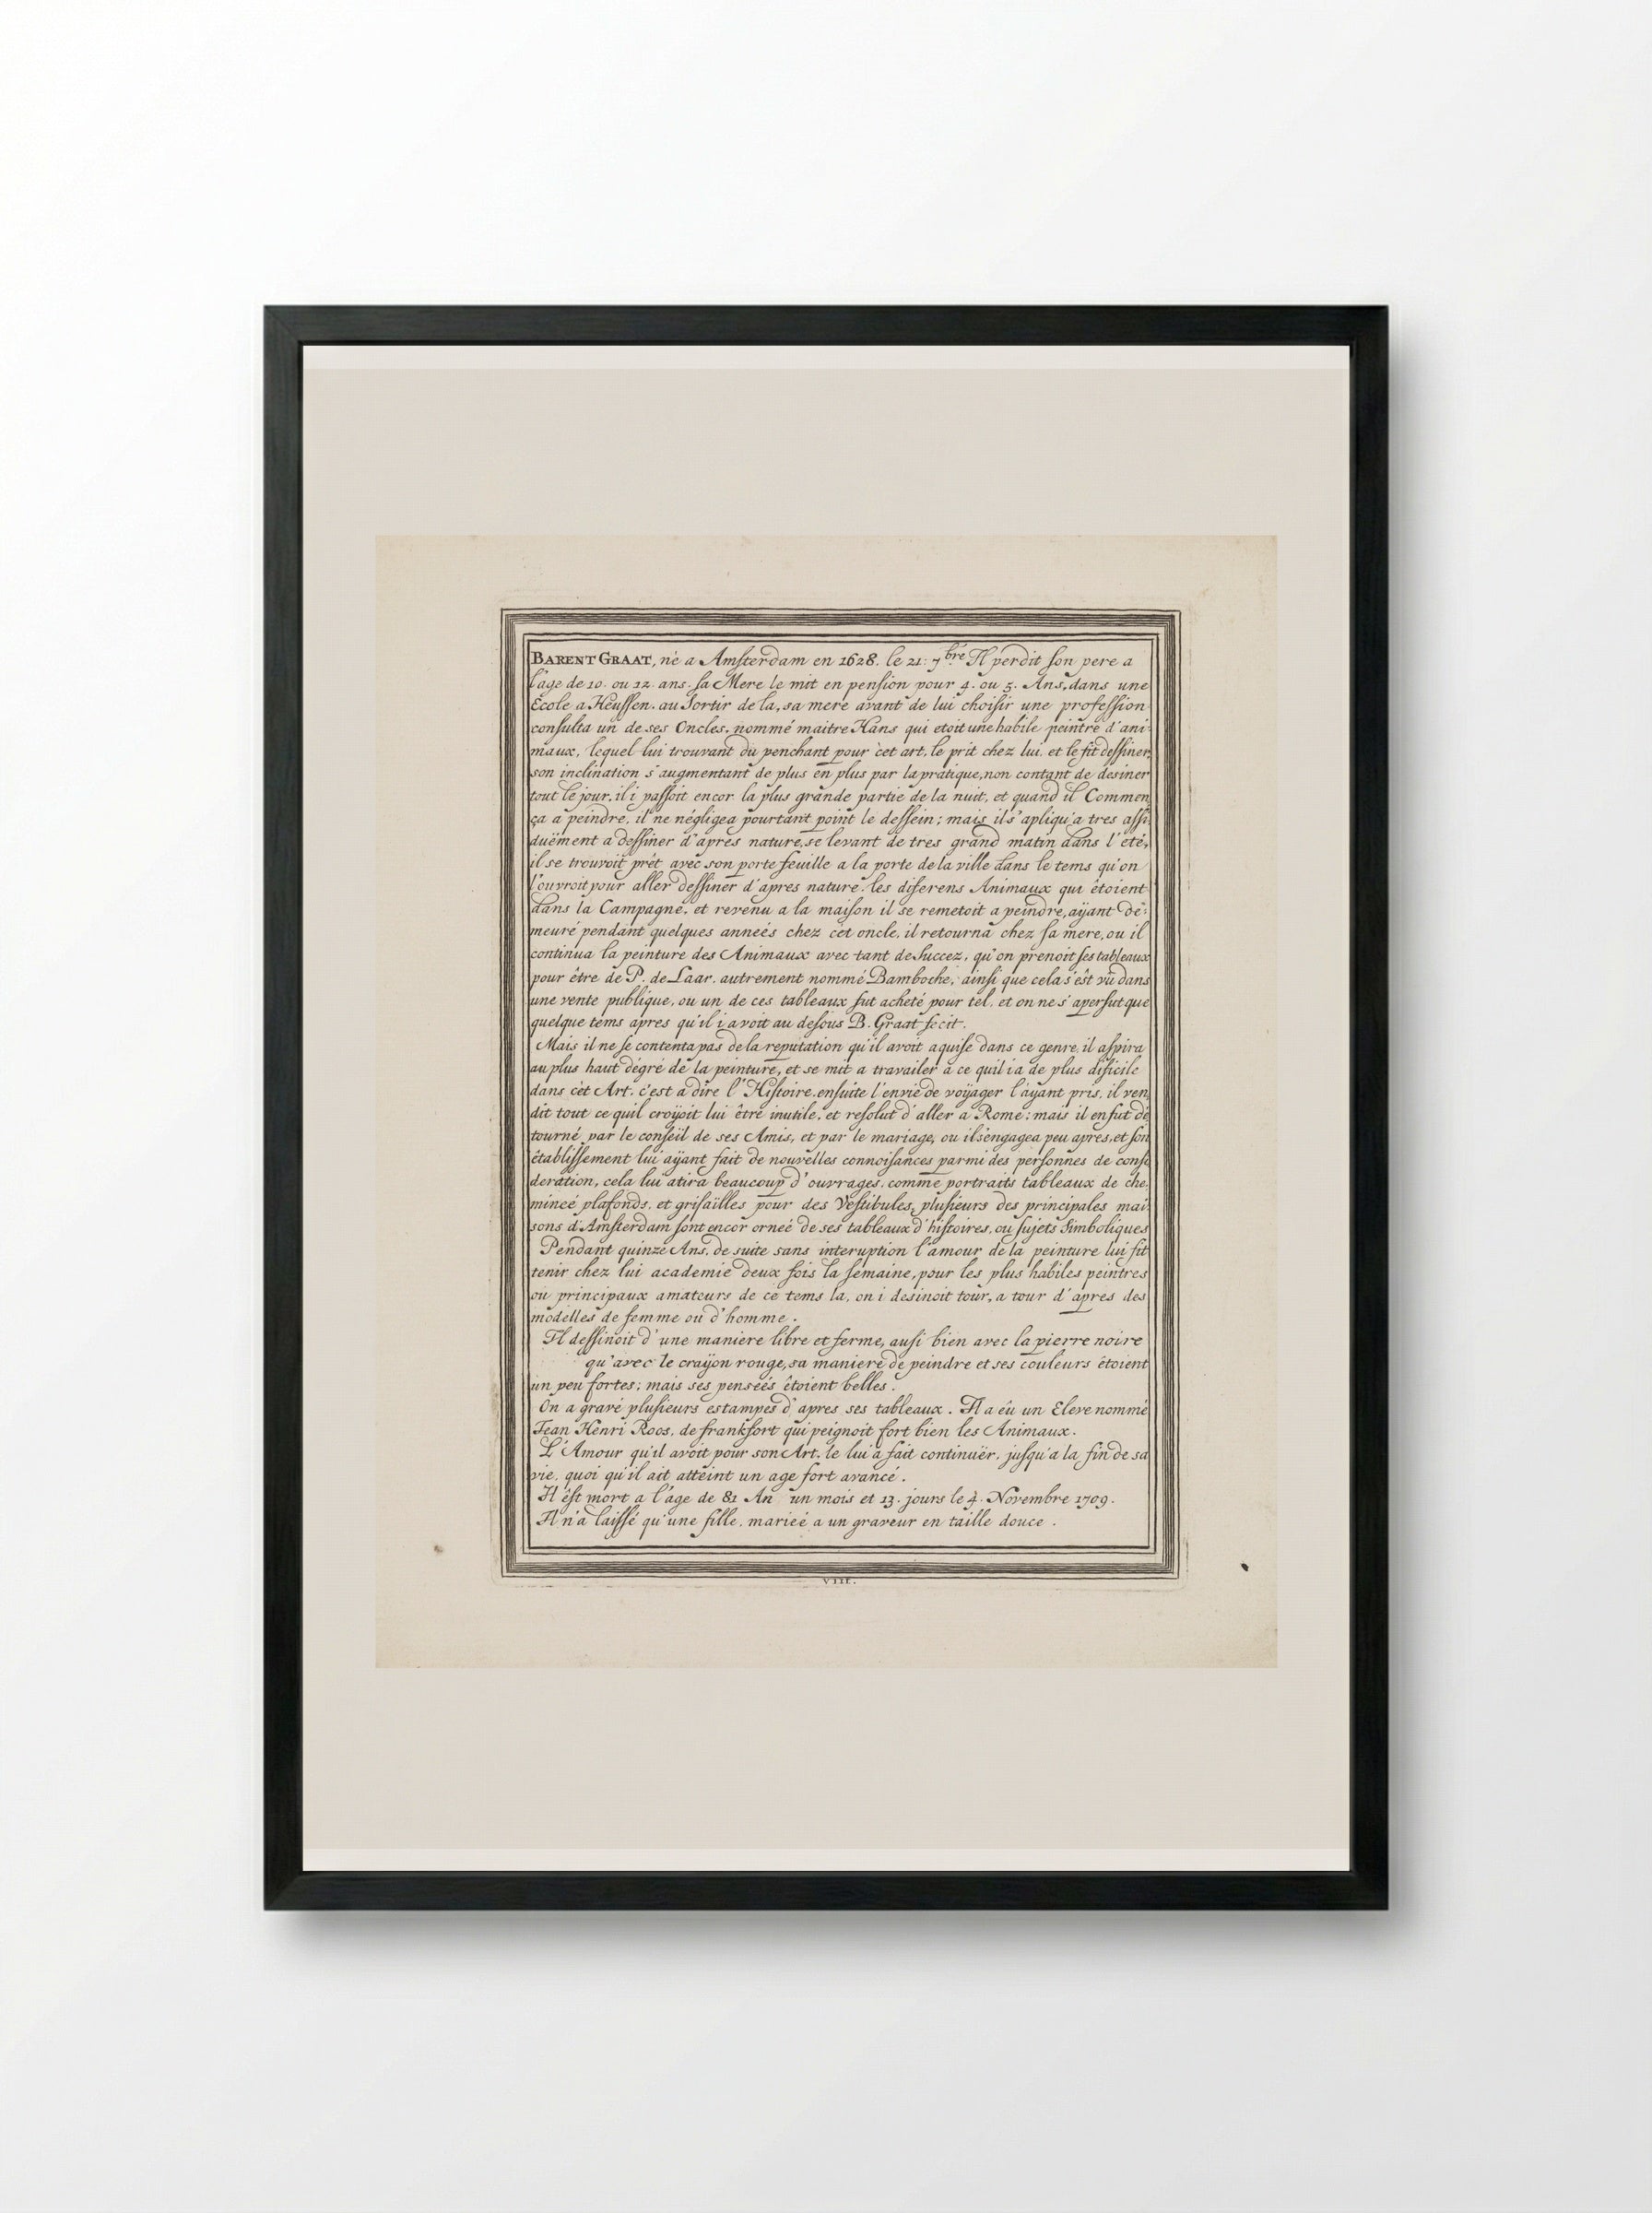 BARENT GRAAT, né a Amsterdam en 1628. le 21. 7bre Il perdit son pere a
l'age de 10. ou 12. ans. sa Mere le mit en pension pour 4. ou 5. Ans, dans une
Ecole a Heussen. au Sortir de la, sa mere avant de lui choisir une profession
consulta un de ses Oncles, nommé maitre Hans qui etoit une habile peintre d'ani-
maux, lequel lui trouvant du penchant pour cet art, le prit chez lui, et le fit dessiner,
son inclination s'augmentant de plus en plus par la pratique, non contant de desiner
tout le jour, il i passoit encor la plus grande partie de la nuit, et quand il Commen
ça a peindre, il ne négligea pourtant point le dessein; mais il s'apliqu'a tres assi-
duëment a dessiner d'apres nature, se levant de tres grand matin dans l'eté,
il se trouvoit prêt avec son porte feuille a la porte de la ville dans le tems qu'on
l'ouvroit pour aller dessiner d'apres nature les diferens Animaux qui êtoient
dans la Campagne, et revenu a la maison il se remetoit a peindre, aÿant dé-
meuré pendant quelques anneés chez cét oncle, il retourna chez sa mere, ou il
continua la peinture des Animaux avec tant de Succez, qu'on prenoit ses tableaux
pour être de P. de Laar, autrement nommé Bamboche, ainsi que cela s'êst vû dans
une vente publique, ou un de ces tableaux fut acheté pour tel, et on ne s'apersut que
quelque tems apres qu'il i avoit au desous B. Graat fecit.
Mais il ne se contenta pas de la reputation qu'il avoit aquise dans ce genre, il aspira
au plus haut dégré de la peinture, et se mit a travailer a ce quil i a de plus dificile
dans cèt Art, c'est a dire l'Histoire, ensuite l'envie de voÿager l'aÿant pris, il ven-
dit tout ce quil croÿoit lui être inutile, et resolut d'aller a Rome; mais il en fut dé
tourné par le conseil de ses Amis, et par le mariage, ou il s'engagea peu apres, et son
établissement lui aÿant fait de nouvelles connoisances parmi des personnes de consi
deration, cela lui atira beaucoup d'ouvrages, comme portraits tableaux de che-
mineé plafonds, et grisailles pour des Vestibules, plusieurs des principales mai-
sons d'Amsterdam sont encor orneé de ses tableaux d'histoires, ou sujets Simboliques
Pendant quinze Ans, de suite sans interuption l'amour de la peinture lui fit
tenir chez lui academie deux fois la semaine, pour les plus habiles peintres
ou principaux amateurs de ce tems la, on i desinoit tour, a tour d'apres des
modelles de femme ou d'homme.
Il dessinoit d'une maniere libre et ferme, ausi bien avec la pierre noire
qu'avec le craÿon rouge, sa maniere de peindre et ses couleurs êtoient
un peu fortes; mais ses penseés êtoient belles.
On a gravé plusieurs estampes d'apres ses tableaux. Il a eû un Eleve nommé
Jean Henri Roos, de frankfort qui peignoit fort bien les Animaux.
L'Amour qu'il avoit pour son Art, le lui a fait continuër, jusqu'a la fin de sa
vie, quoi qu'il ait atteint un age fort avancé.
Il êst mort a l'age de 81 An un mois et 13. jours le 4. Novembre 1709.
Il n'a laissé qu'une fille, marieé a un graveur en taille douce.
VIII.